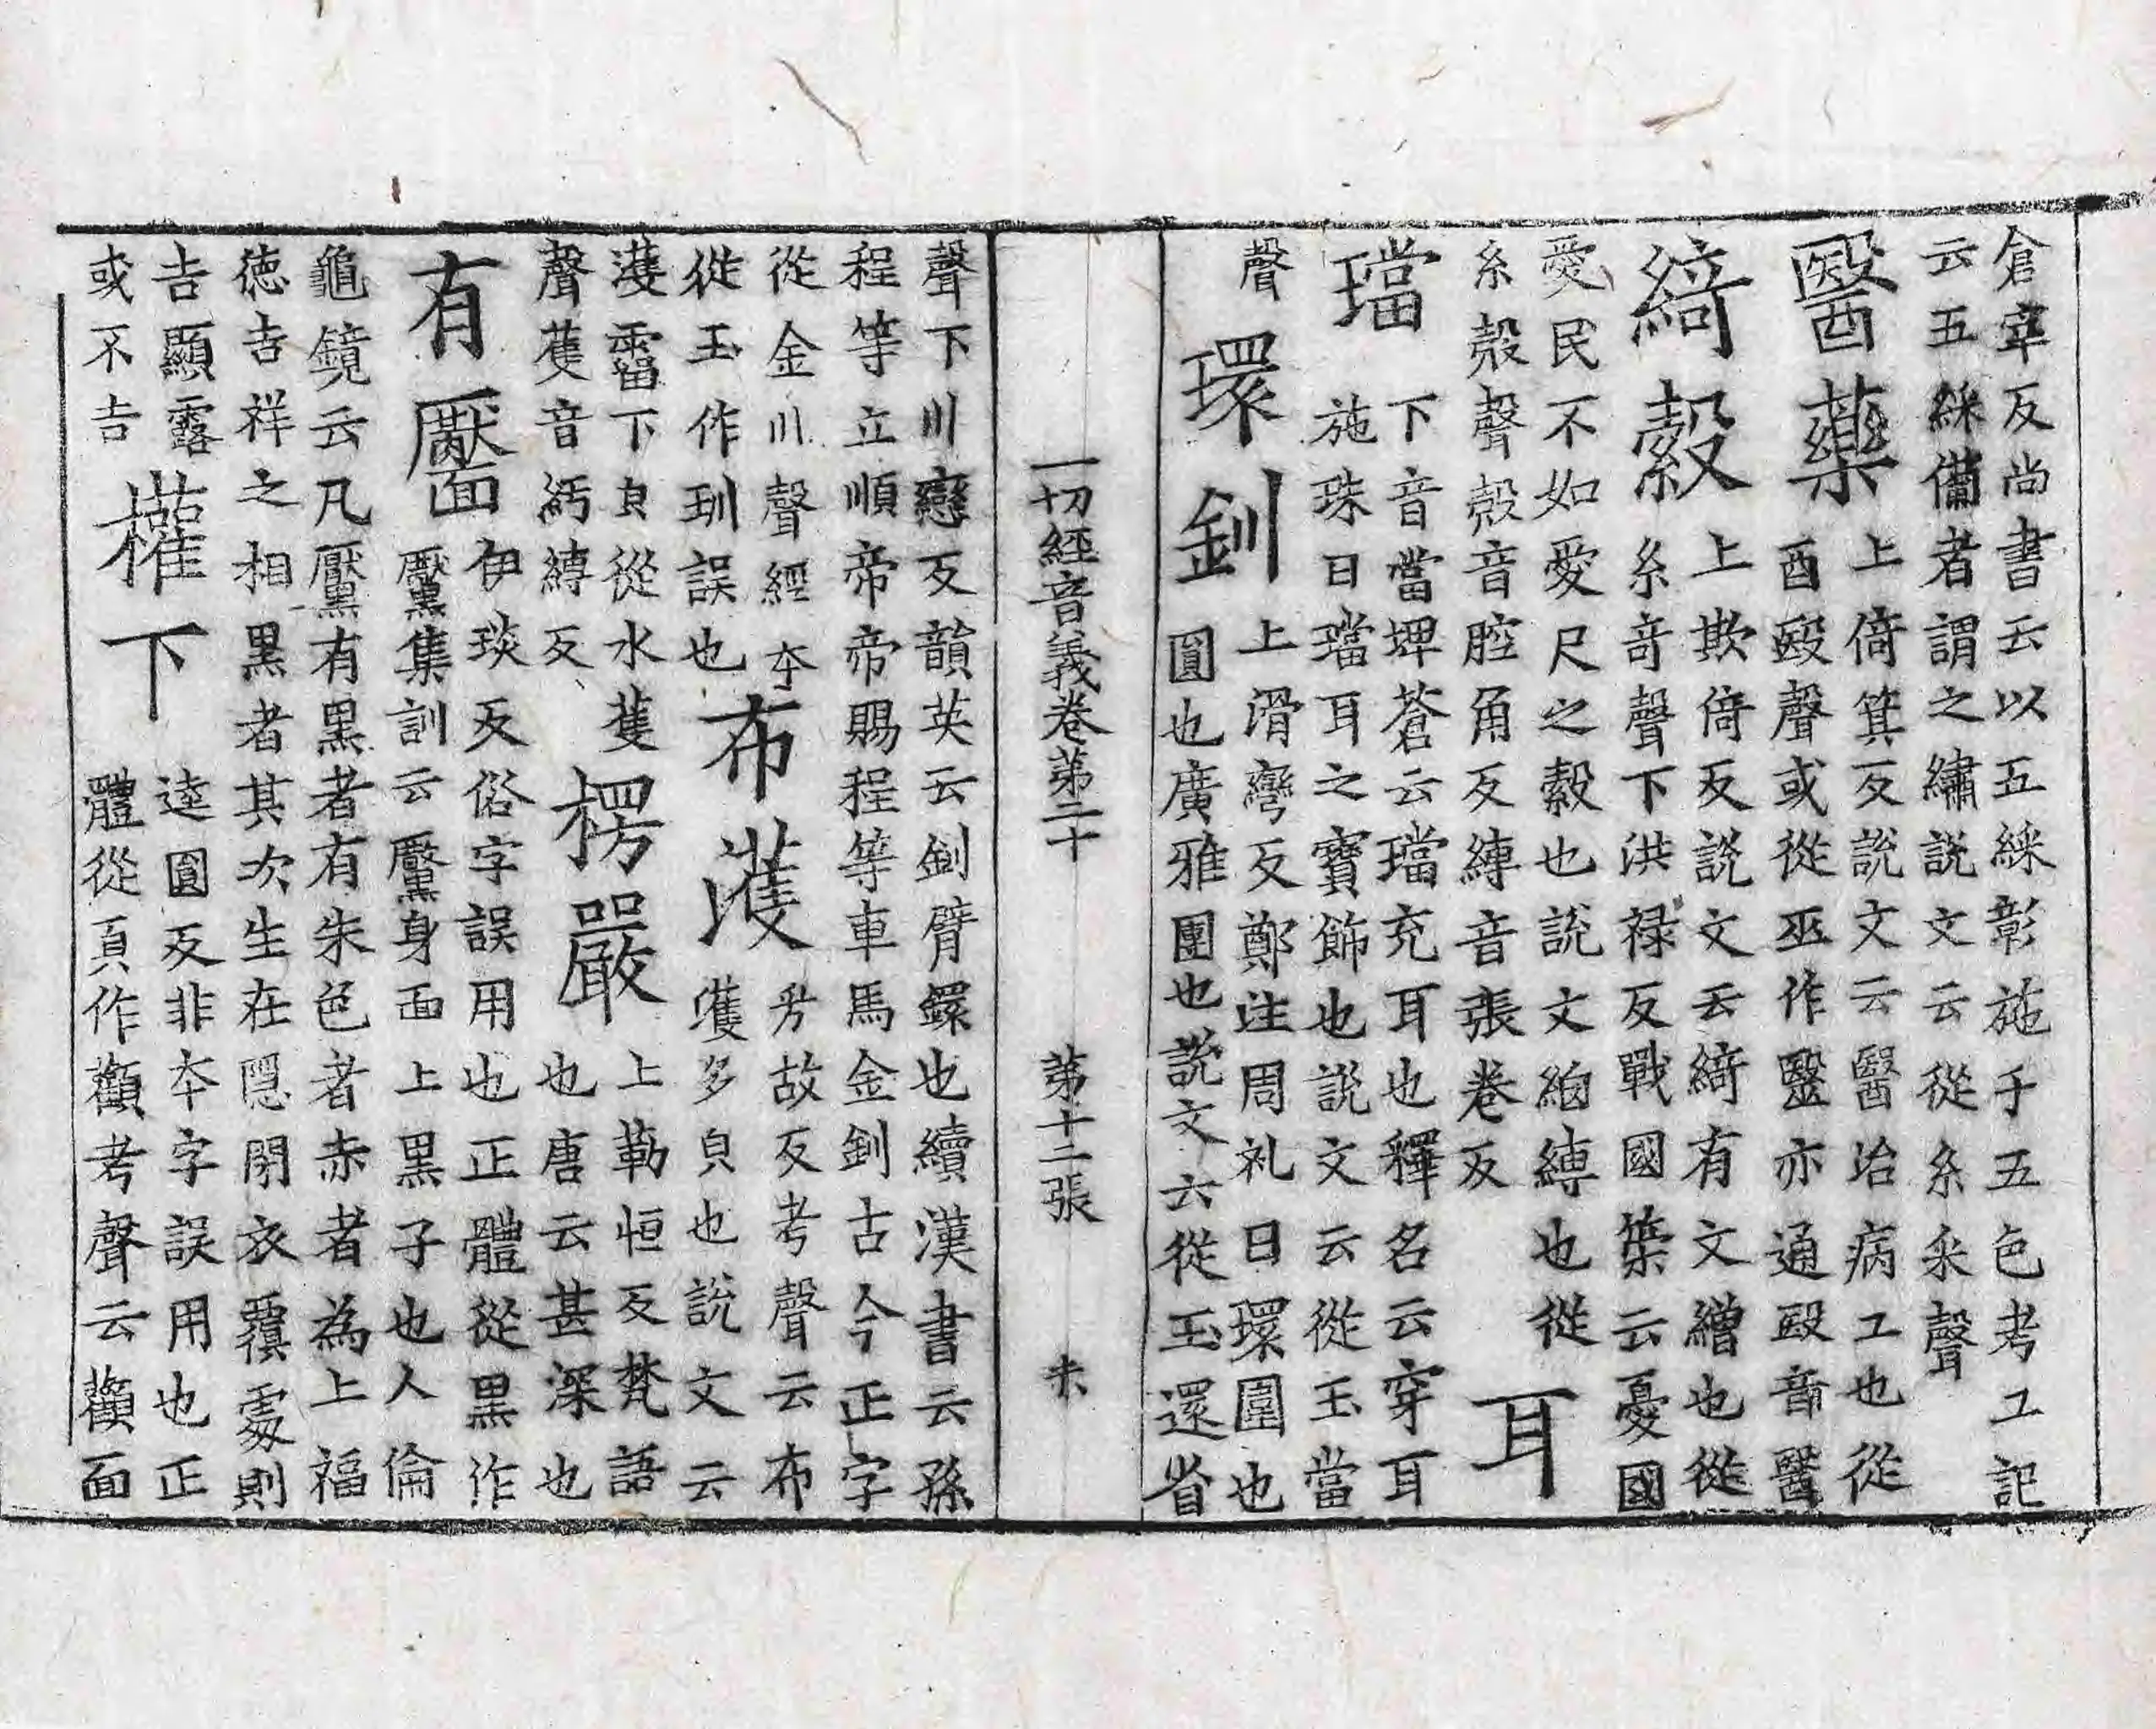 倉宰反尚書云以五綵彰施于五色考工記
云五綵備者謂之繡說文云從糸釆聲
醫藥
上倚箕反說文云醫治病工也從
酉殹聲或從巫作毉亦通殹音翳
綺縠
上欺倚反說文云綺有文繒也從
糸奇聲下洪禄反戰國策云憂國
愛民不如愛尺之縠也說文細縛也從
糸㱿聲㱿音腔角反縛音張卷反
耳
璫
下音當埤蒼云璫充耳也釋名云穿耳
施珠曰璫耳之寶飾也說文云從玉當
聲
環釧
上滑彎反鄭注周礼曰環圍也
圓也廣雅團也說文云從玉還省
一切經音義卷第二十 第十二張 未
聲下川戀反韻英云釧臂鐶也續漢書云孫
程等立順帝帝賜程等車馬金釧古今正字
從金川聲經夲
從玉作玔誤也
布濩
芳故反考聲云布
濩多皃也說文云
濩霤下皃從水蒦
聲蒦音紆縛反
楞嚴
上勒恒反梵語
也唐云甚深也
有靨
伊琰反俗字誤用也正體從黑作
黶集訓云黶身面上黑子也人倫
龜鏡云凡黶有黑者有朱色者赤者為上福
徳吉祥之相黑者其次生在隱閉衣覆處則
吉顯露
或不吉
權下
逵圓反非夲字誤用也正
體從頁作顴考聲云顴面